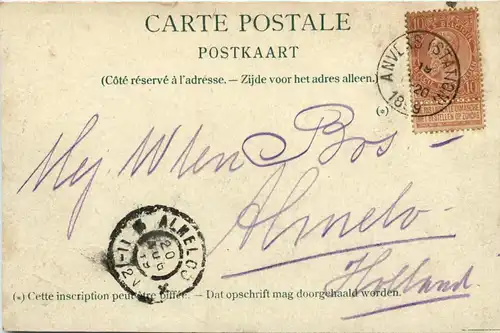 CARTE POSTALE
POSTKAART
(Côté réservé à l'adresse. — Zijde voor het adres alleen.)
10 10
ANVERS (STATION)
19
20
189
(*)
Mej. Wten Bos -
Almelo -
Holland.
ALMELO
20 AUG
11-12V
(*) Cette inscription peut être biffée. — Dat opschrift mag doorgehaald worden.